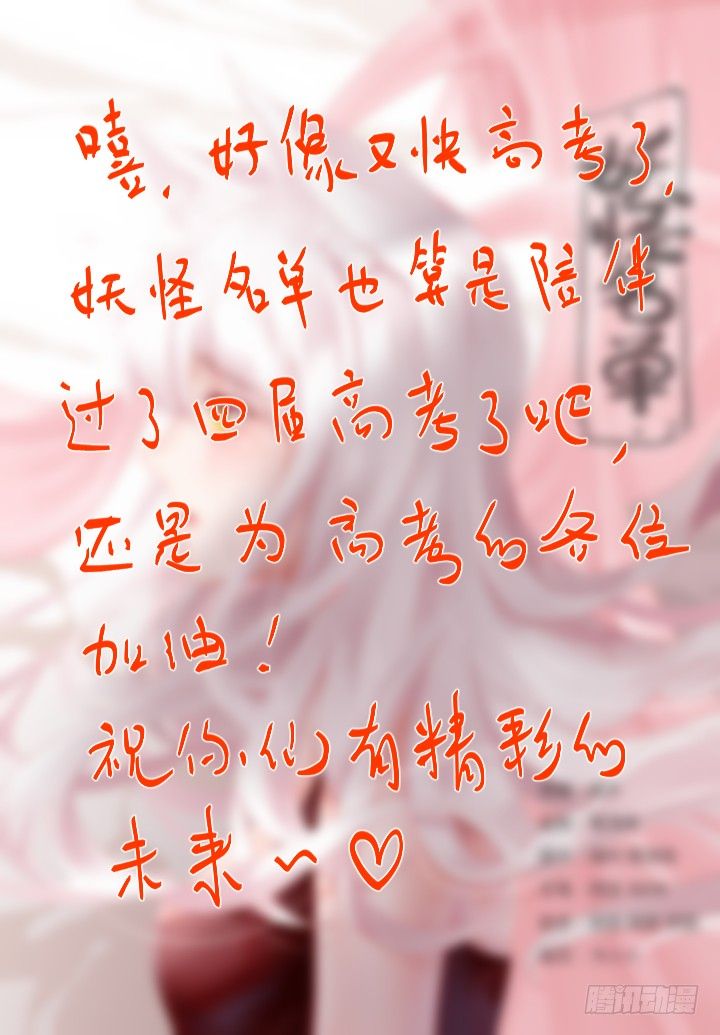 嘻，好像又快高考了，
妖怪名单也算是陪伴
过了四届高考了吧，
还是为高考的各位
加油！
祝你们有精彩的
未来~♡
妖怪名单
腾讯动漫